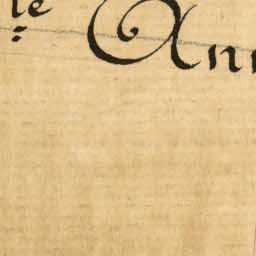 le Ann